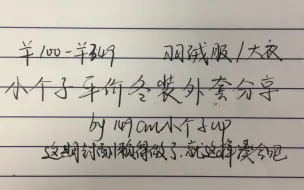 ¥100-¥349 羽绒服/大衣
小个子平价冬装外套分享
by 149cm小个子up
这期封面懒得做了,就这样凑合吧